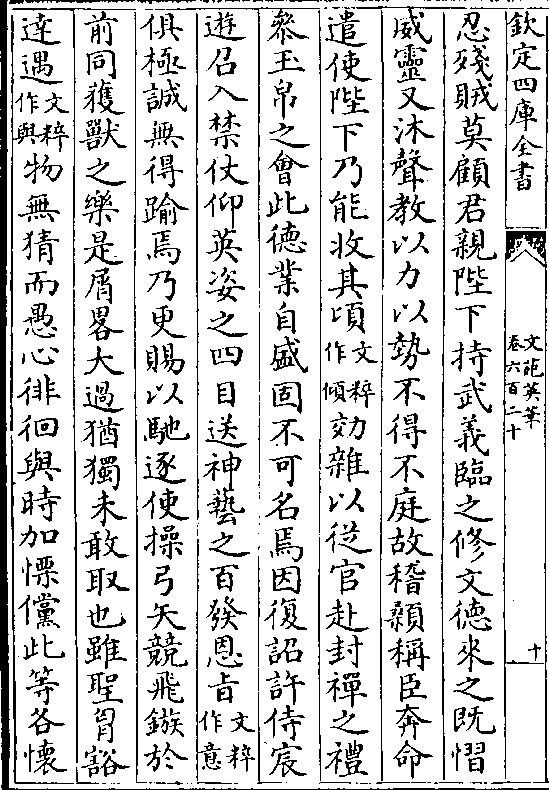 欽定四庫全書
文苑英華
卷六百二十
十
忍殘賊莫顧君親陛下持武義臨之修文德來之既慴
威靈又沐聲教以力以勢不得不庭故稽顙稱臣奔命
遣使陛下乃能收其頃文粹作傾効雜以從官赴封禪之禮
叅玉帛之會此德業自盛固不可名焉因復詔許侍宸
遊召入禁仗仰英姿之四目送神藝之百發恩旨文粹作意
俱極誠無得踰焉乃更賜以馳逐使操弓矢競飛鏃於
前同獲獸之樂是屑畧大過猶獨未敢取也雖聖胷豁
達遇文粹作與物無猜而愚心徘徊與時加慄儻此等各懷